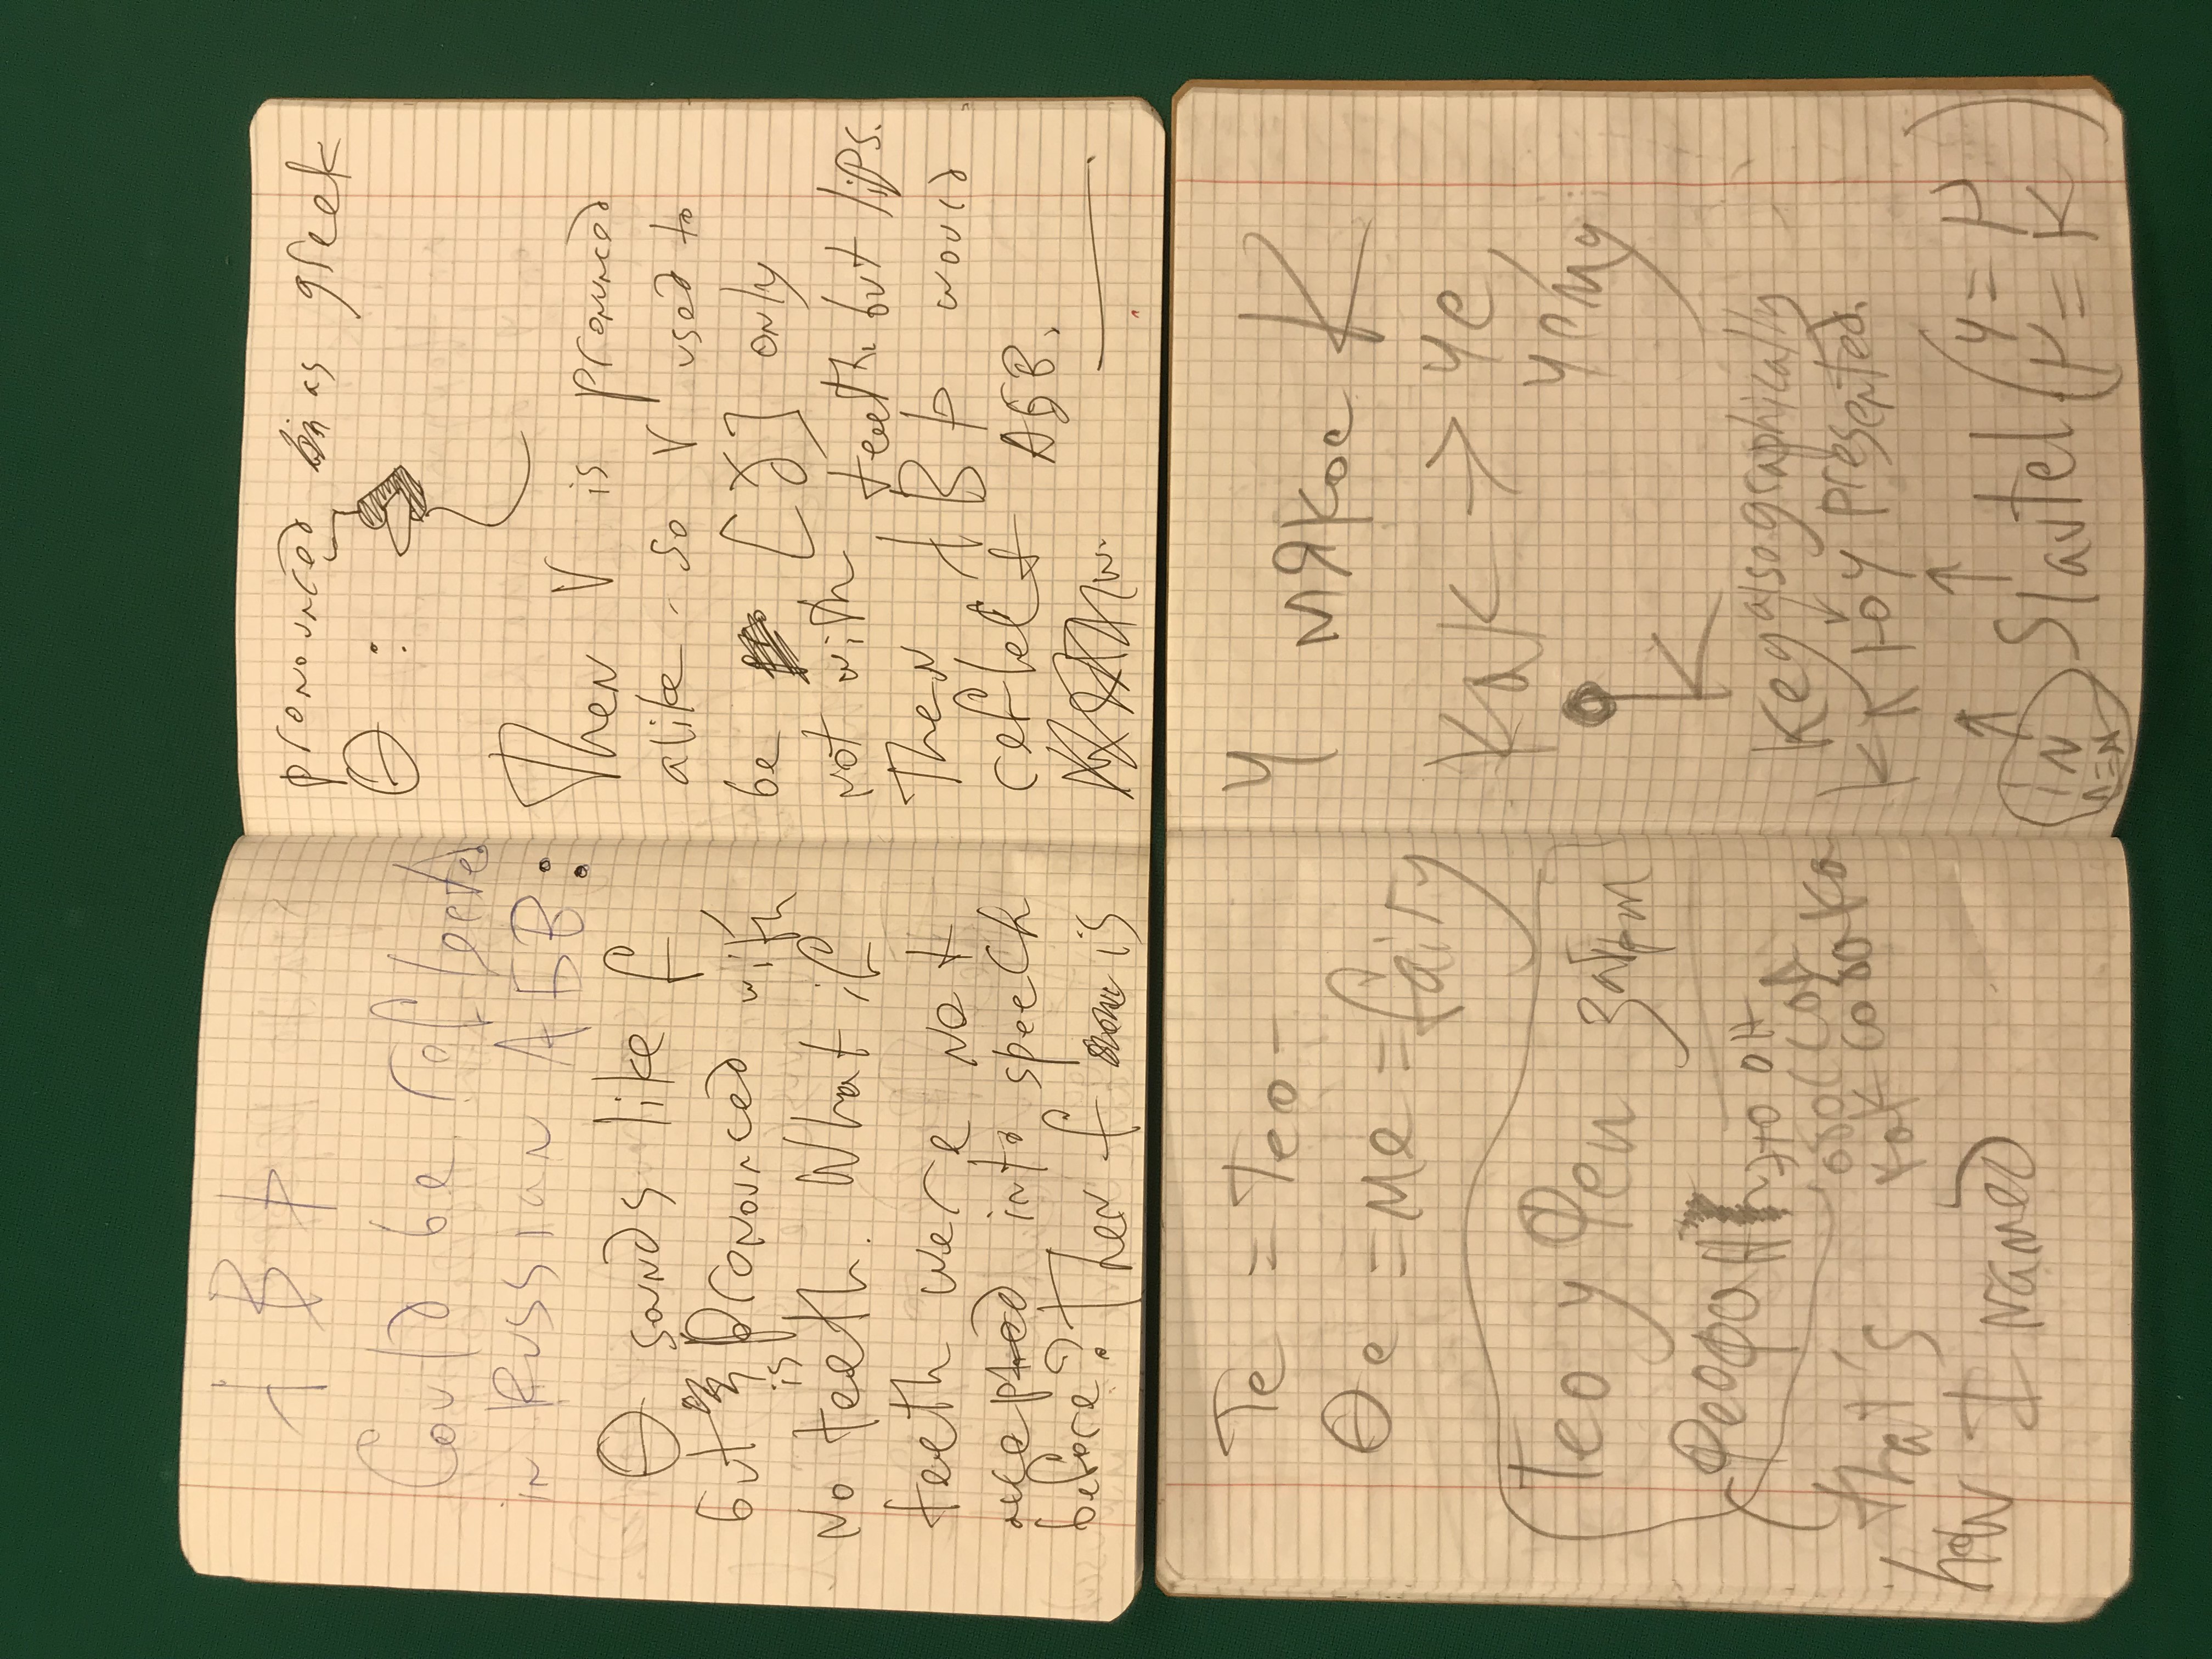 ᚽ B ᚦ
Could be reflected
in Russian АБВ:
Θ sounds like f
but is pronounced with
no teeth. What if
teeth were not
accepted into speech
before? Then f is
pronounced as greek
Θ :
Then V is pronunced
alike - so V used to
be [ɣ] only
not with teeth but lips.
Then ᚽ B ᚦ would
reflect АБВ.
Te = Teo-
Θe = me = fairy
Teo у Феи
Феофан
это он
обоссал
как собака
that's
how I named
Ч мякое К
как → че,
чему
K
Key also graphically
presented.
in
Slavtel
(ч = μ
μ = K)